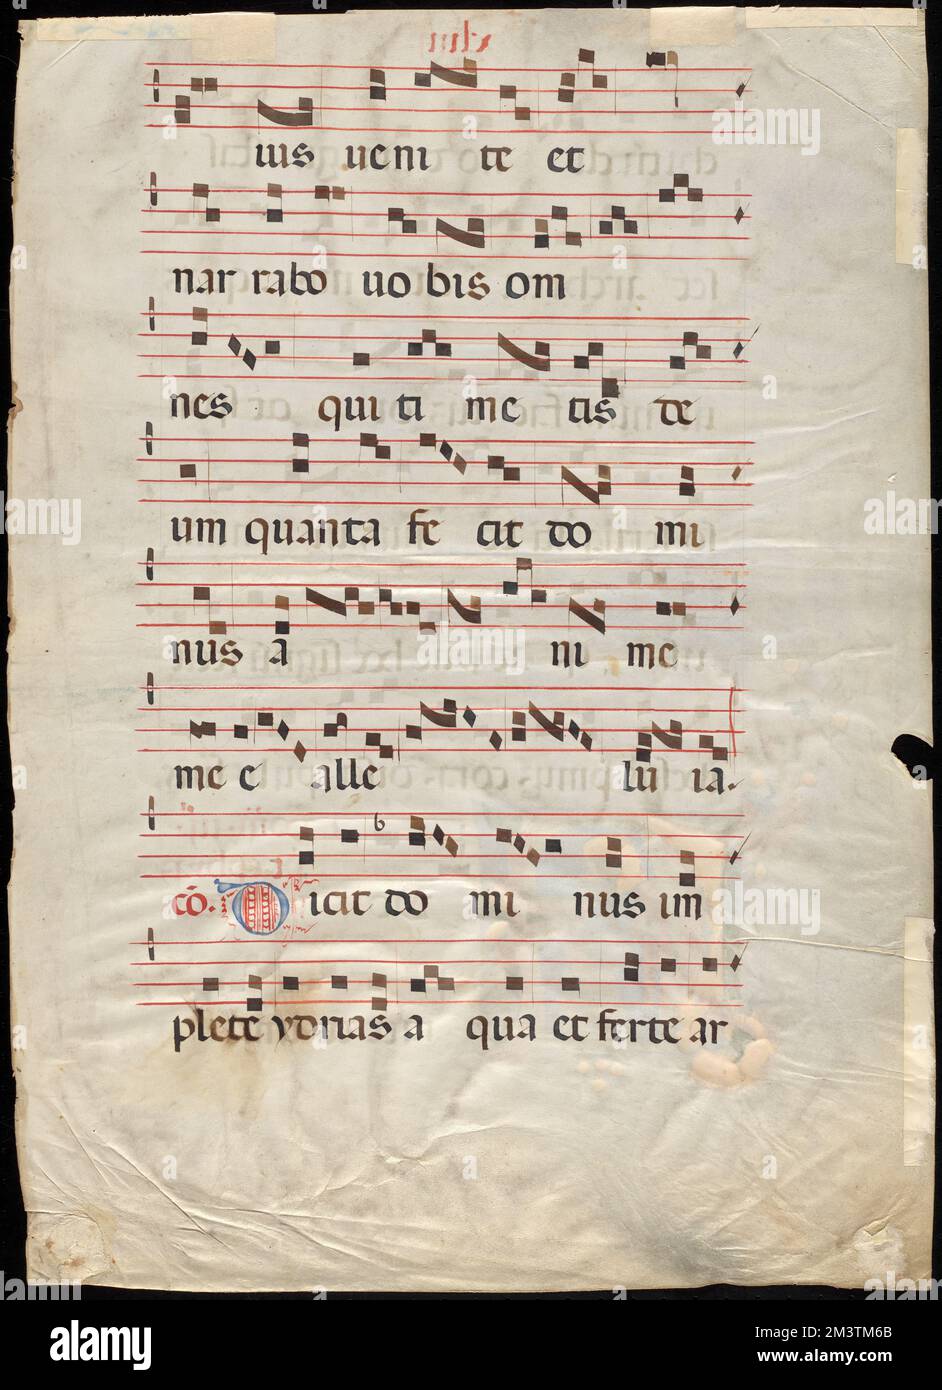 ius ueni te et
nar rabo uo bis om
nes qui ti me tis de
um quanta fe cit do mi
nus a ni me
me e alle lu ia.
cō. Dicit do mi nus im
plete ydrias a qua et ferte ar
alamy
2M3TM6B
www.alamy.com